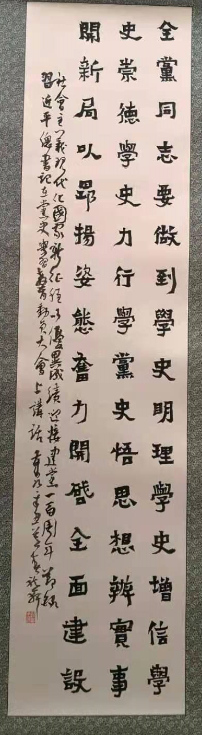 全黨同志要做到學史明理學史增信學
史崇德學史力行學黨史悟思想辦實事
開新局以昂揚姿態奮力開啓全面建設
社會主義現代化國家新征程以優異成績迎接建黨一百周年節錄
習近平總書記在黨史學習教育動員大會上講話